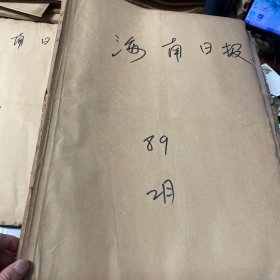 海南日报
89
2月
南日